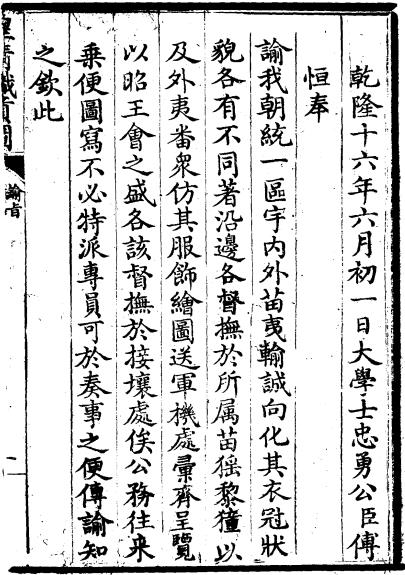 乾隆十六年六月初一日大學士忠勇公臣傅
恒奉
諭我朝統一區宇内外苗夷輸誠向化其衣冠狀
貌各有不同著沿邊各督撫於所属苗猺黎獞以
及外夷畨衆仿其服飾繪圖送軍機處彚齊呈覽
以昭王會之盛各該督撫於接壤處俟公務往来
乗便圖寫不必特派專員可於奏事之便傳諭知
之欽此
皇清職貢圖
諭旨
一